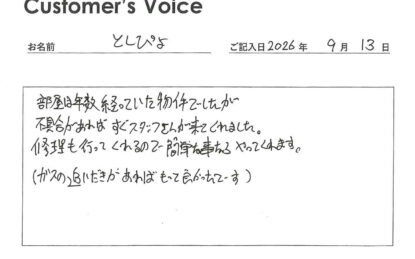 Customer's Voice
お名前 としぴよ ご記入日2026年 9月 13日
部屋は年数経っていた物件でしたが
不具合があれば すぐスタッフさんが来てくれました。
修理も行ってくれるので 簡単な事なら やってくれます。
(ガスの追いだきが あれば もって良かったでーす)